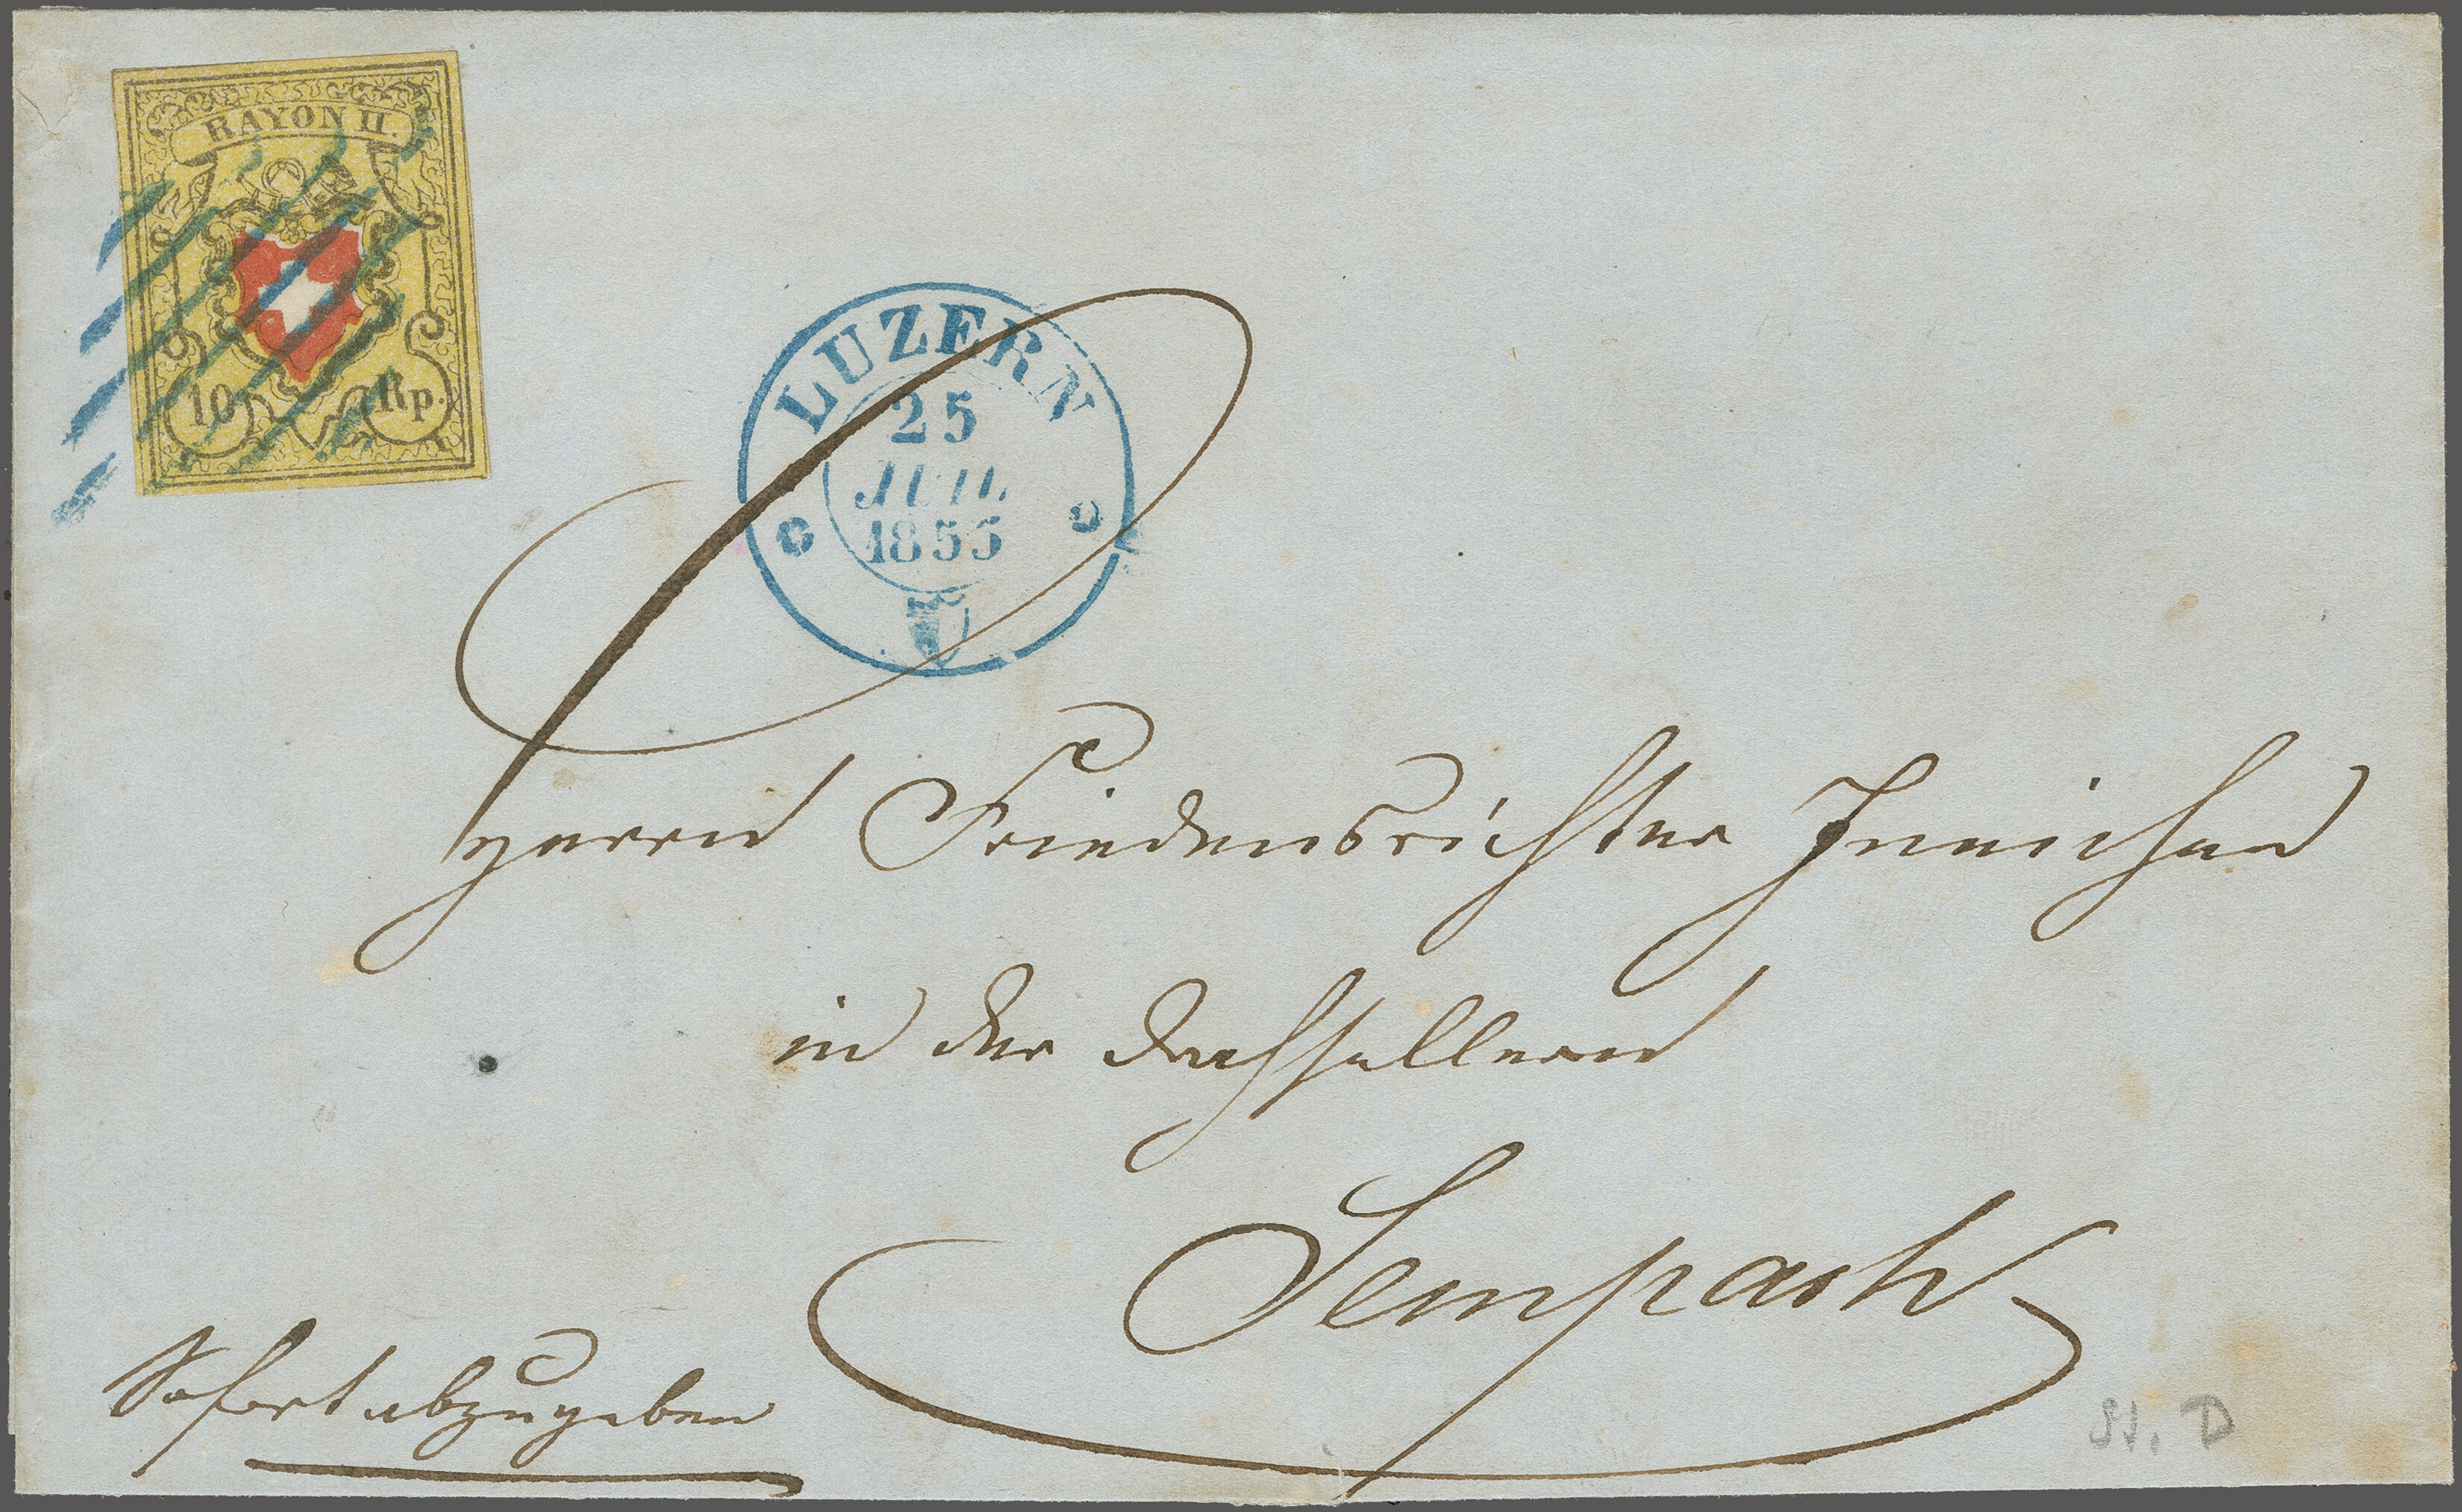 RAYON II.
POST
10 Rp.
LUZERN
25
JUIL
1855
Herrn Friedensrichter Ineichen
in der
Sempach
Sofort abzugeben
St. D